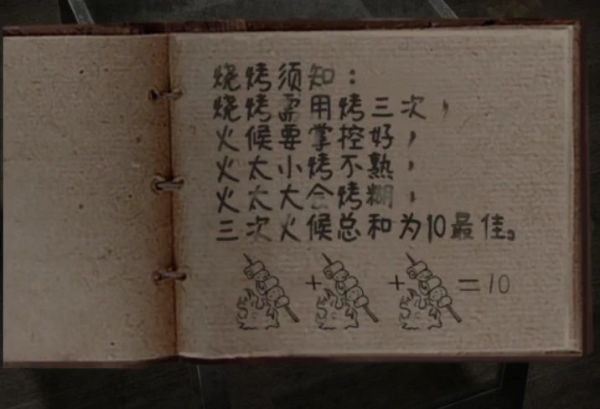 烧烤须知：
烧烤需用烤三次，
火候要掌控好，
火太小烤不熟，
火太大会烤糊，
三次火候总和为10最佳。
+ + =10